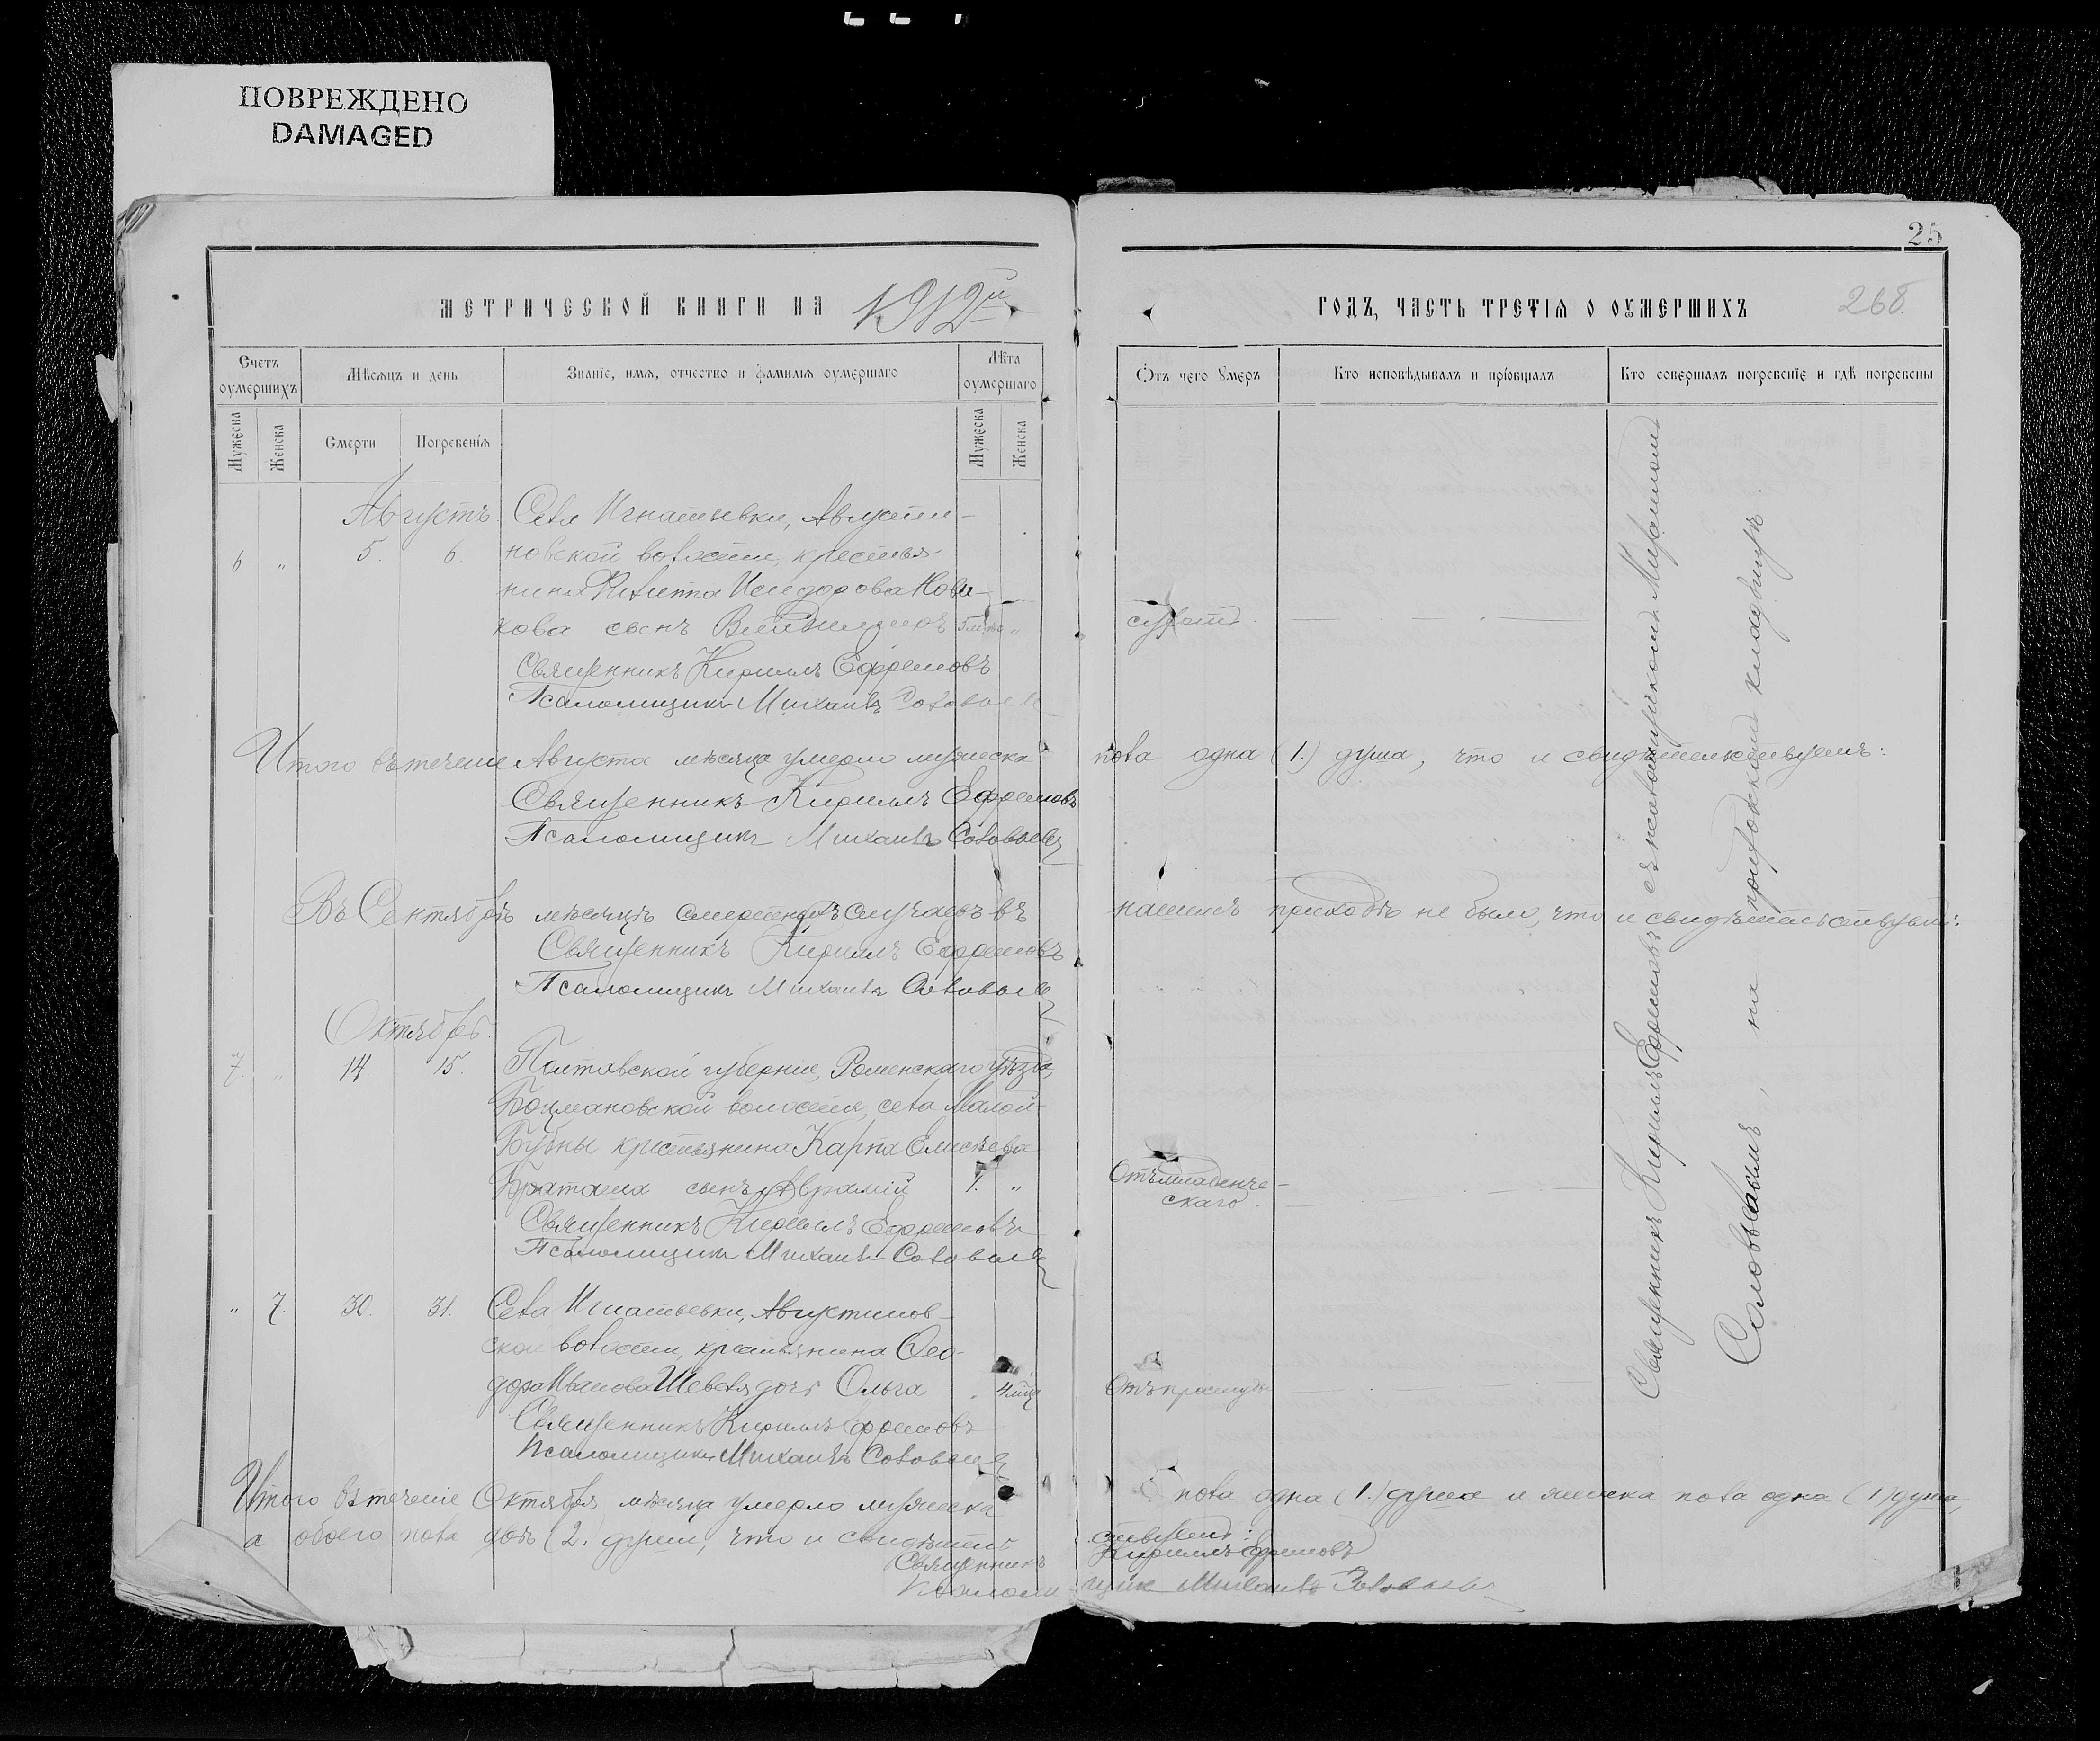 ПОВРЕЖДЕНО
DAMAGED
25
МЕТРИЧЕСКОЙ КНИГИ НА 1912й
ГОДЪ, ЧАСТЬ ТРЕТІѦ О ОУМЕРШИХЪ
268
Счетъ оумершихъ
Мѣсѧцъ и день
Званіе, имѧ, отчество и фамиліѧ оумершаго
Лѣта оумершаго
Отъ чего умеръ
Кто исповѣдывалъ и пріобщалъ
Кто совершалъ погребеніе и гдѣ погребены
Мужеска
Женска
Смерти
Погребеніѧ
Мужеска
Женска
Августъ
Села Игнатьевки, Августи-
6 " 5. 6. новской волости, крестья-
нина Филиппа Исидорова Нови-
кова сынъ Владиміръ 5 "
Священникъ Кириллъ Ефремовъ
Псаломщикъ Михаилъ Соловьевъ
Итого въ теченіе Августа мѣсяца умерло мужеска пола одна (1.) душа, что и свидѣтельствуемъ:
Священникъ Кириллъ Ефремовъ
Псаломщикъ Михаилъ Соловьевъ
Въ Сентябрѣ мѣсяцѣ смертныхъ случаевъ въ нашемъ приходѣ не было, что и свидѣтельствуемъ:
Священникъ Кириллъ Ефремовъ
Псаломщикъ Михаилъ Соловьевъ
Октябрь.
7. " 14. 15. Полтавской губерніи, Роменскаго уѣзда,
волости, села Малой-
Бубны крестьянина Карпа Елисѣева
сынъ Аврамій 1. " Отъ младенче-
скаго.
Священникъ Кириллъ Ефремовъ
Псаломщикъ Михаилъ Соловьевъ
" 7. 30. 31. Села Игнатьевки, Августинов-
ской волости, крестьянина Ѳео-
дора Иванова дочь Ольга 4 Отъ простуды
Священникъ Кириллъ Ефремовъ
Псаломщикъ Михаилъ Соловьевъ
Итого въ теченіе Октября мѣсяца умерло мужеска пола одна (1.) душа и женска пола одна (1) душа,
а обоего пола двѣ (2. души, что и свидѣтель ствуемъ:
Священникъ Кириллъ Ефремовъ
Псаломщикъ Михаилъ Соловьевъ
Священникъ Кириллъ Ефремовъ съ псаломщикомъ Михаиломъ
Соловьевымъ, на приходскомъ кладбищѣ